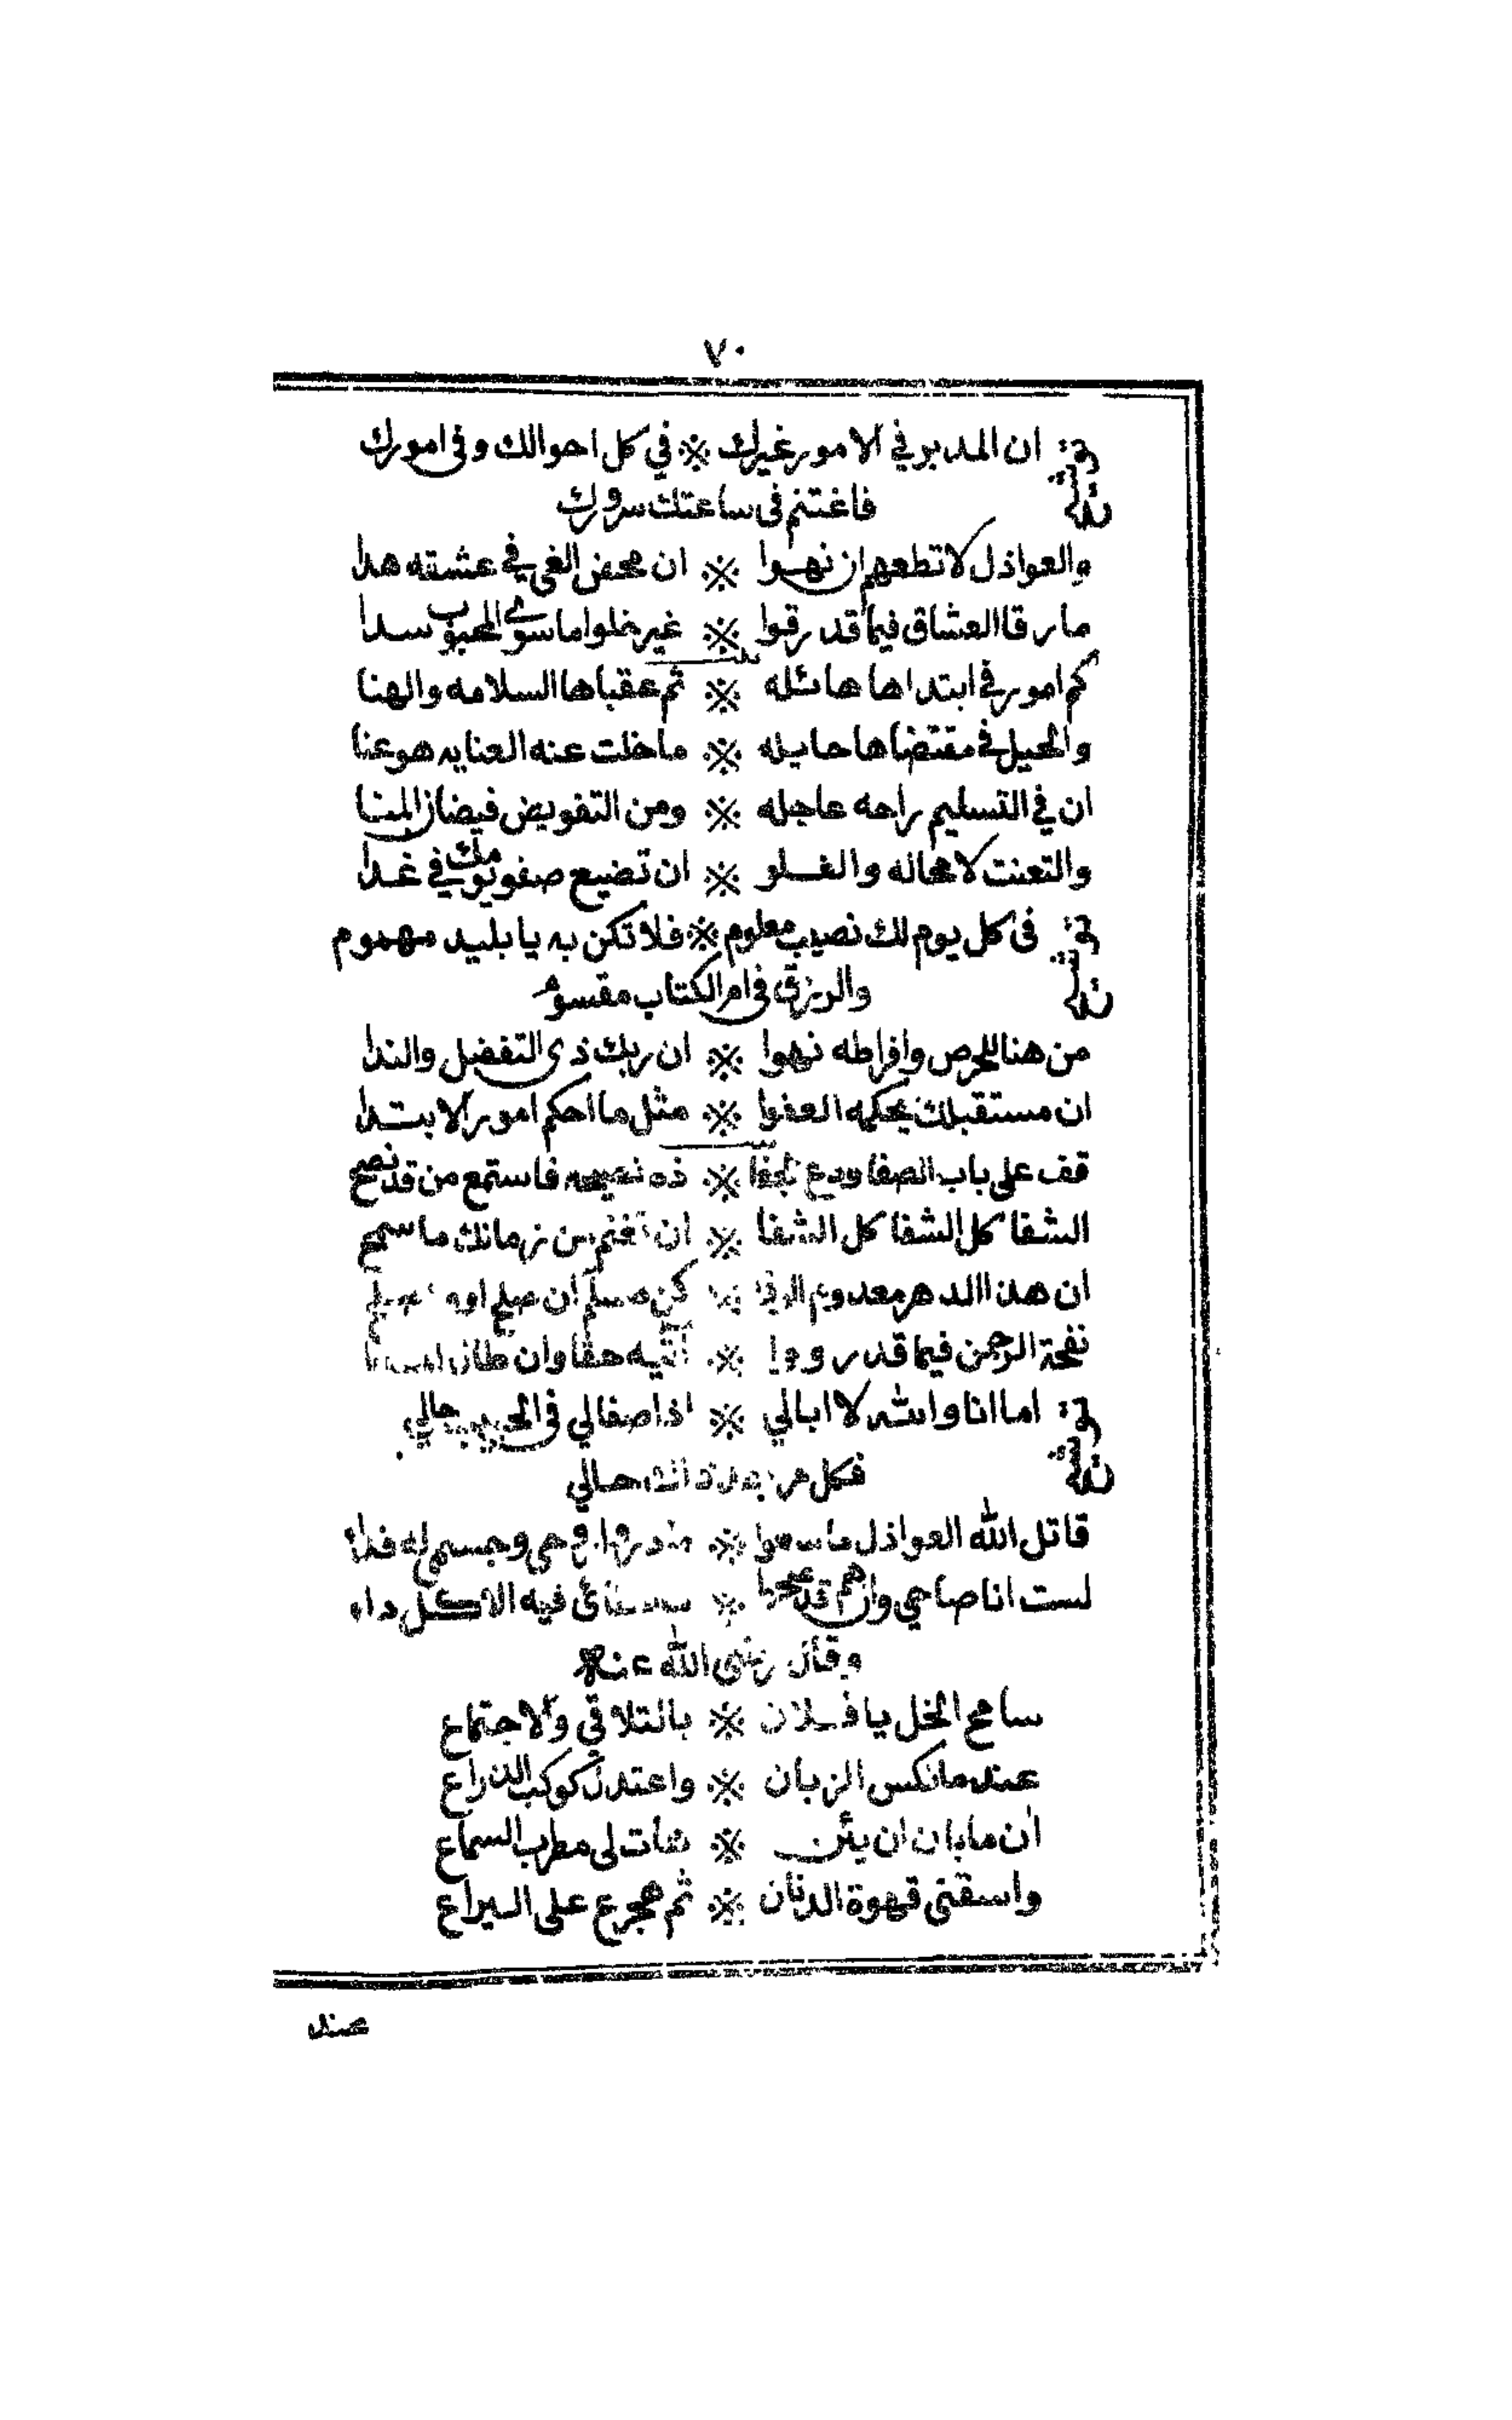 ٧٠
ان المدبر في الامور غيرك ※ في كل احوالك وفى امورك
فاغتنم فى ساعتك سرورك
والعواذل لا تطعهم ان نهوا ※ ان محض الغي في عشقه هدا
ما رقا العشاق فيما قد رقوا ※ غير خلوا ما سوى المحبوب سدا
كم امور في ابتداها هائله ※ ثم عقباها السلامه والهنا
والحيل في مقتضاها حايله ※ ما خلت عنه العنايه هو عنا
ان في التسليم راحه عاجله ※ ومن التفويض فيضان المنا
والتعنت لا محاله والغلو ※ ان تضيع صفو يومك في غدا
فى كل يوم لك نصيب معلوم ※ فلا تكن به يا بليد مهموم
والرزق في ام الكتاب مقسوم
من هنا للحرص وافراطه نهوا ※ ان ربك ذى التفضل والندا
ان مستقبلك يحكمه العفوا ※ مثل ما احكم امور الابتدا
قف على باب الصفا ودع الجفا ※ ذه نصيحه فاستمع من قد نصح
الشقا كل الشفا كل الشفا ※ ان تغنم من زمانك ما سمح
ان هذا الدهر معدوم الوفا ※ كن مسلم ان صلح او
نفحة الرحمن فيما قد رووا ※ آتيه حقا وان طال
اما انا والله لا ابالي ※ اذا صفالي فى الحبيب حالي
فكل مر بعد ذالك حالي
قاتل الله العواذل ما ※ روحي وجسمي له فداء
لست انا صاحي وان هم قد ※ فيه الا كل داء
وقال رضى الله عنه
سامح الخل يا فلان ※ بالتلاقي والاجتماع
عندما نكس الزبان ※ واعتدل كوكب الذراع
آن ما بان ان يئن ※ هات لى مطرب السماع
واسقنى قهوة الدنان ※ ثم هجرع على اليراع
عند